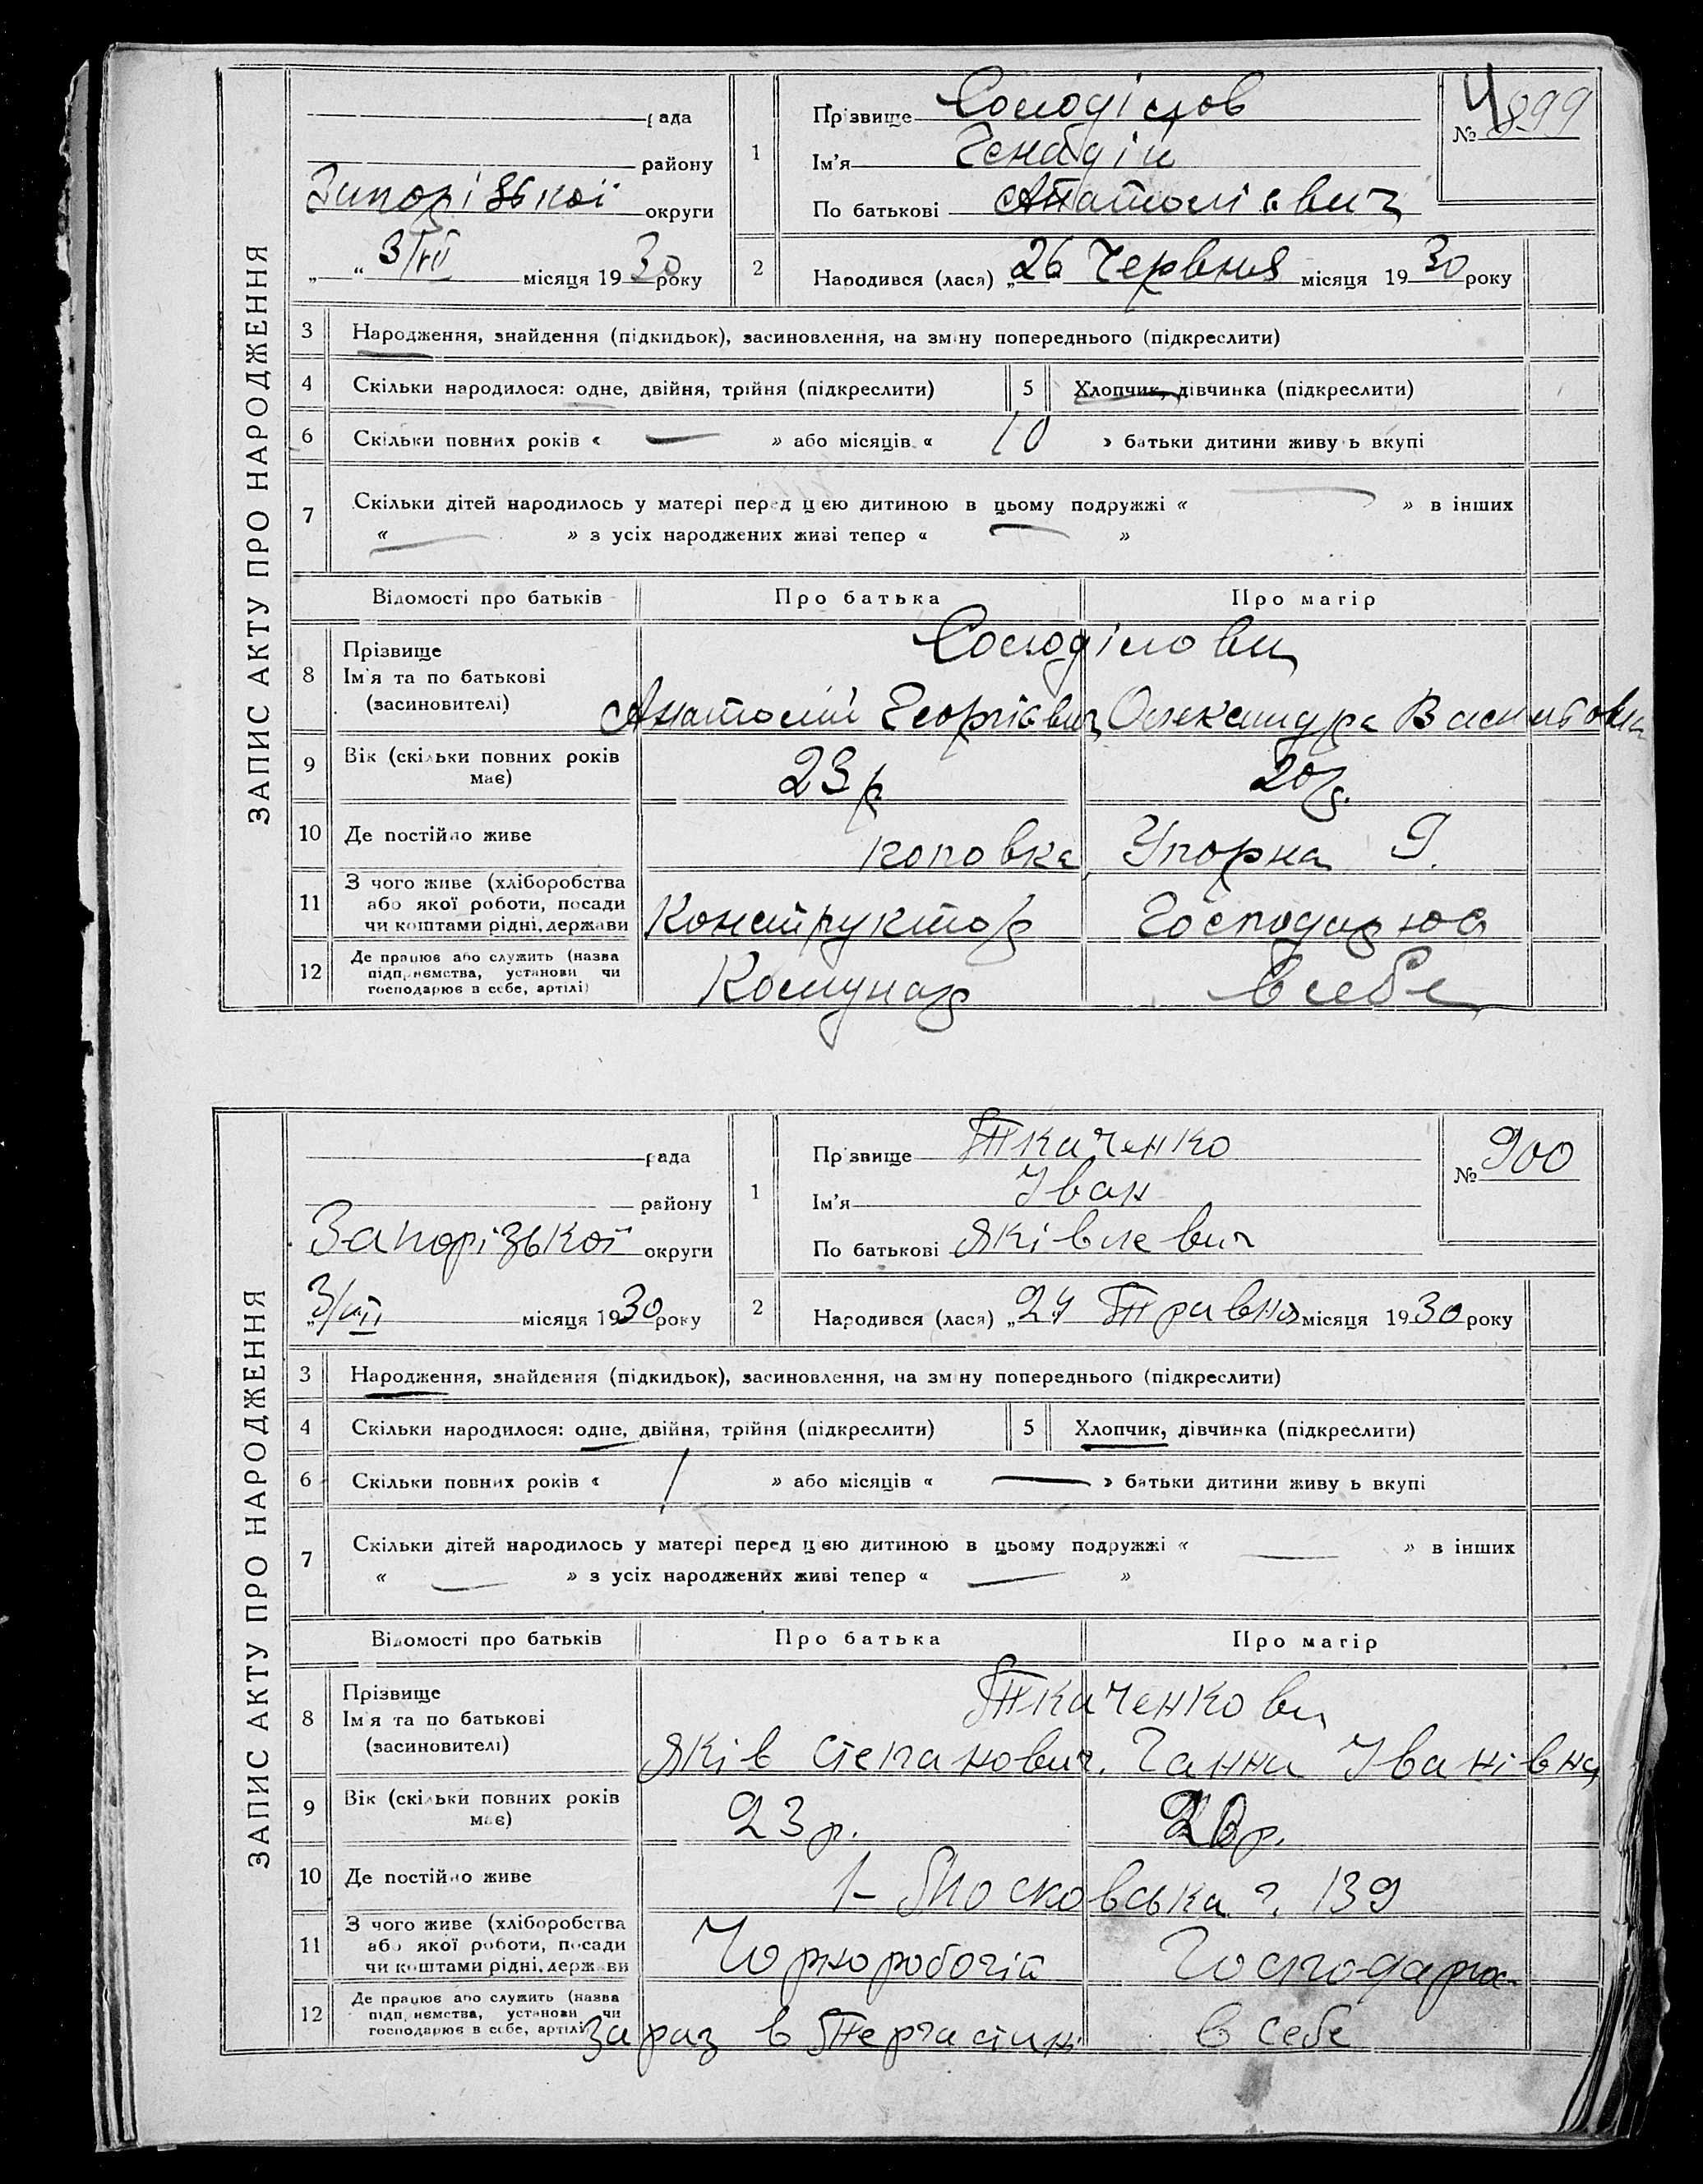 ЗАПИС АКТУ ПРО НАРОДЖЕННЯ
рада
району
Запорізької округи
„ “ 3/VII місяця 1930 року
1
Прізвище Солоділов
Ім'я Генадій
По батькові Анатолієвич
№ 899
2
Народився (лася) „26 Червня місяця 1930 року
3 Народження, знайдення (підкидьок), засиновлення, на зміну попереднього (підкреслити)
4 Скільки народилося: одне, двійня, трійня (підкреслити) 5 Хлопчик, дівчинка (підкреслити)
6 Скільки повних років « — » або місяців « 10 » батьки дитини живуть вкупі
7 Скільки дітей народилось у матері перед цією дитиною в цьому подружжі « — » в інших
« — » з усіх народжених живі тепер « — »
Відомості про батьків Про батька Про матір
8 Прізвище
Ім'я та по батькові
(засиновителі)
Солоділови
Анатолій Георгієвич Олександра
9 Вік (скільки повних років має) 23 р 20 р.
10 Де постійно живе Упорна 9.
11 З чого живе (хліборобства
або якої роботи, посади
чи коштами рідні, держави
Конструктор
12 Де працює або служить (назва
підприємства, установи чи
господарює в себе, артілі)
Комунар в себе
ЗАПИС АКТУ ПРО НАРОДЖЕННЯ
рада
району
Запорізької округи
„3/VII місяця 1930 року
1
Прізвище Ткаченко
Ім'я Іван
По батькові Яківлевич
№ 900
2
Народився (лася) „24 Травня місяця 1930 року
3 Народження, знайдення (підкидьок), засиновлення, на зміну попереднього (підкреслити)
4 Скільки народилося: одне, двійня, трійня (підкреслити) 5 Хлопчик, дівчинка (підкреслити)
6 Скільки повних років « 1 » або місяців « — » батьки дитини живуть вкупі
7 Скільки дітей народилось у матері перед цією дитиною в цьому подружжі « — » в інших
« — » з усіх народжених живі тепер « — »
Відомості про батьків Про батька Про матір
8 Прізвище
Ім'я та по батькові
(засиновителі)
Ткаченкови
Яків Степанович. Ганна Іванівна
9 Вік (скільки повних років має) 23 р. 20 р.
10 Де постійно живе 1– Московська 139
11 З чого живе (хліборобства
або якої роботи, посади
чи коштами рідні, держави
Чорноробочій
12 Де працює або служить (назва
підприємства, установи чи
господарює в себе, артілі)
зараз в в себе